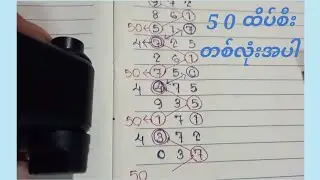 50 ထိပ်စီး
တစ်လုံးအပါ
8 6 1
50 5 1 7
4 7 2 5
2 6 1
50 7 5 0
4 4 7 5
9 3 5
50 1 7 1
4 3 7 2
0 3 7
50